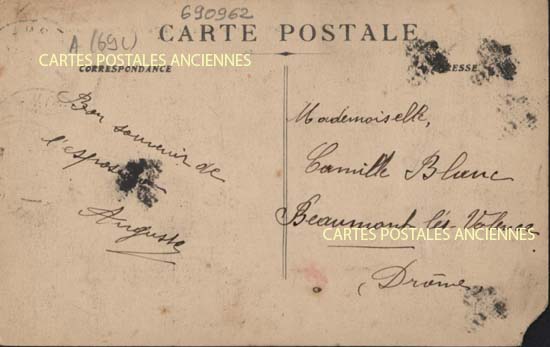 690962
CARTE POSTALE
A (69L)
CARTES POSTALES ANCIENNES
CORRESPONDANCE
Bon souvenir de
Auguste
Mademoiselle,
Camille Blanc
Beaumont les Valence
CARTES POSTALES ANCIENNES
(Drôme)